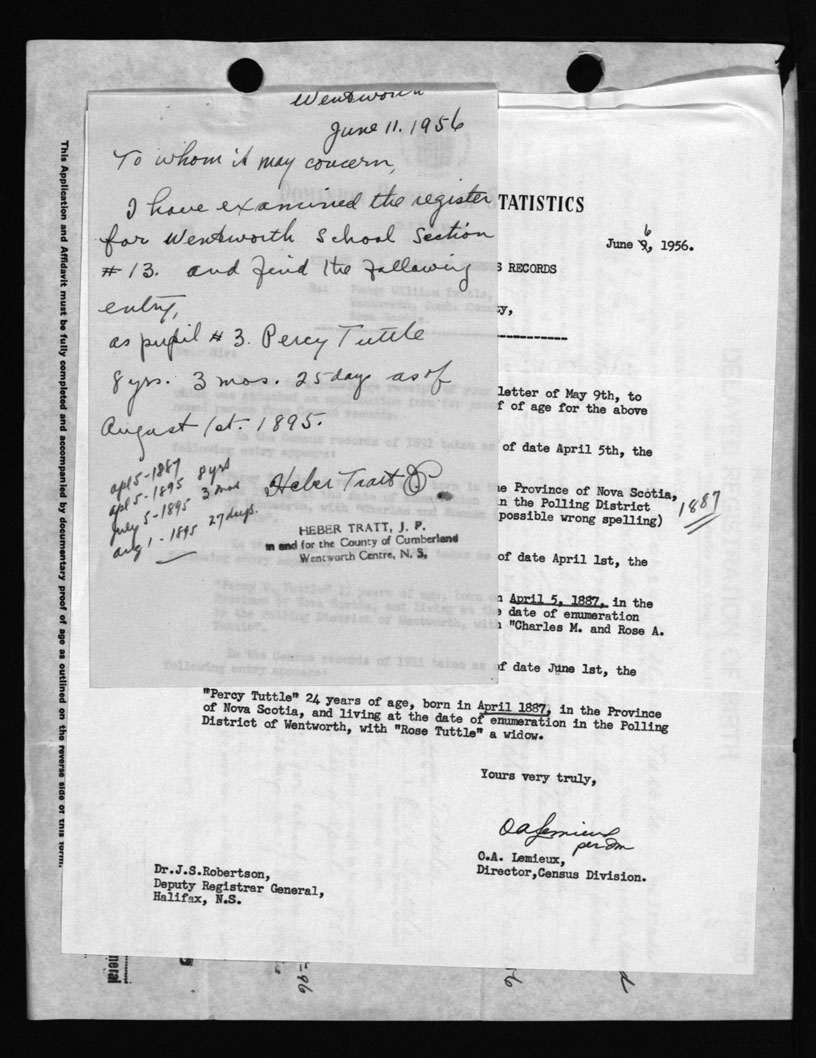 Wentworth
June 11. 1956
To whom it may concern,
I have examined the register
for Wentworth School Section
# 13. and find the following
entry,
as pupil # 3. Percy Tuttle
8 yrs. 3 mos. 25 days as of
August 1st. 1895.
apl 5-1887
apl 5-1895 8 yrs
July 5-1895 3 mos
aug 1-1895 27 days.
Heber Tratt JP
HEBER TRATT, J. P.
in and for the County of Cumberland
Wentworth Centre, N. S.
TATISTICS
6
June 9, 1956.
S RECORDS
ty,
letter of May 9th, to
f of age for the above
of date April 5th, the
e Province of Nova Scotia,
n the Polling District
possible wrong spelling)
1887
of date April 1st, the
n April 5, 1887, in the
e date of enumeration
"Charles M. and Rose A.
of date June 1st, the
"Percy Tuttle" 24 years of age, born in April 1887, in the Province
of Nova Scotia, and living at the date of enumeration in the Polling
District of Wentworth, with "Rose Tuttle" a widow.
Yours very truly,
O A Lemieux
per
O.A. Lemieux,
Director,Census Division.
Dr.J.S.Robertson,
Deputy Registrar General,
Halifax, N.S.
This Application and Affidavit must be fully completed and accompanied by documentary proof of age as outlined on the reverse side of this form.
neral